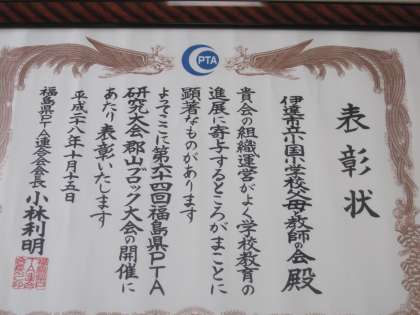 PTA
表彰状
伊達市立小国小学校父母と教師の会殿
貴会の組織運営がよく学校教育の
進展に寄与するところがまことに
顕著なものがあります
よってここに第六十四回福島県PTA
研究大会郡山ブロック大会の開催に
あたり表彰いたします
平成二十八年十月十五日
福島県PTA連合会会長 小林利明